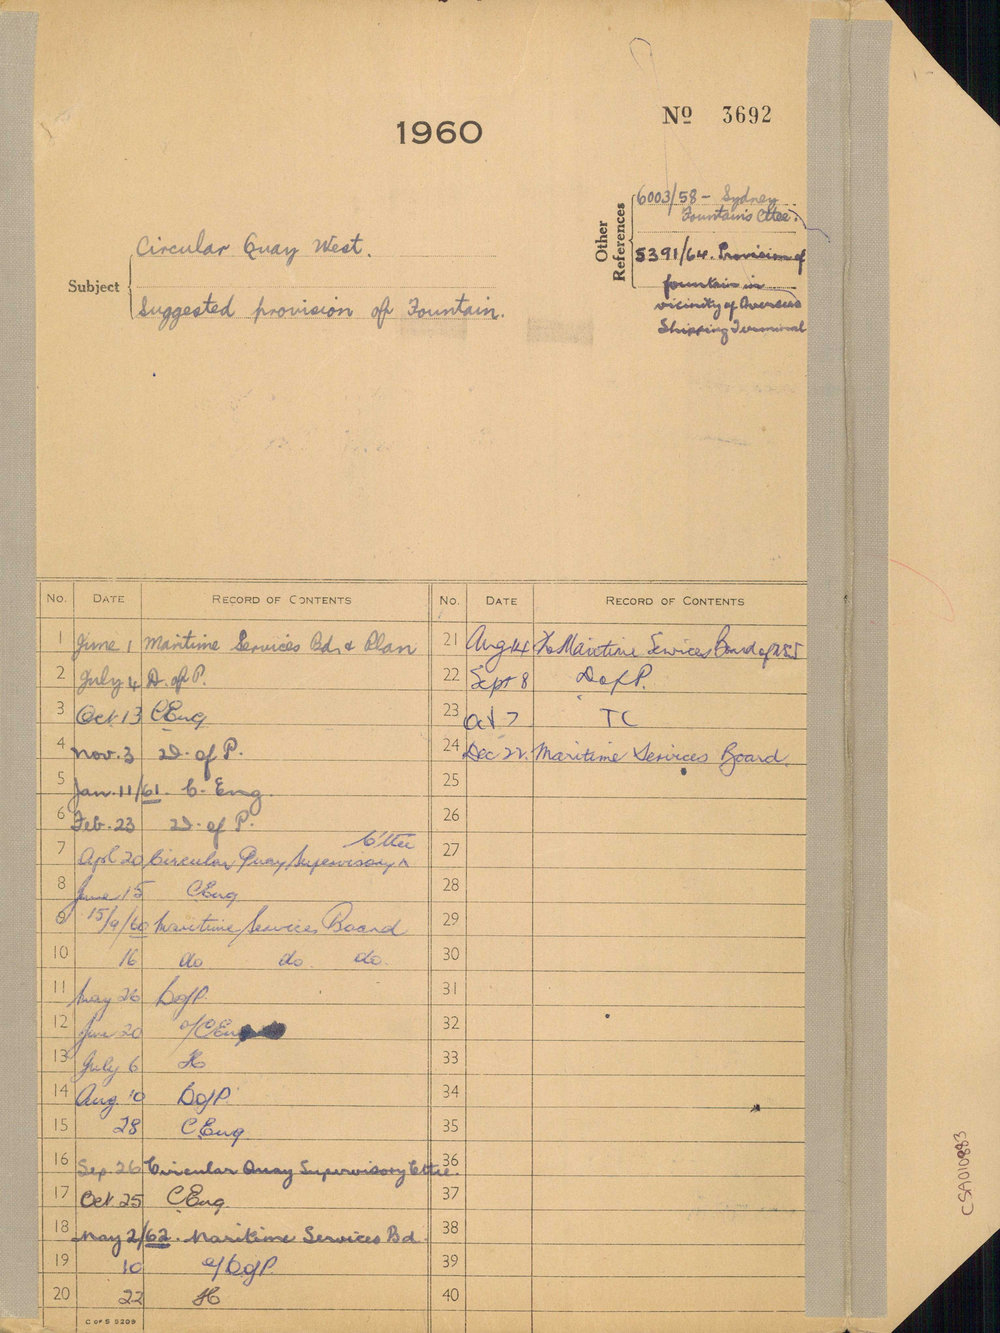 1960
Nº 3692
Other References
6003/58 - Sydney
Fountains Cttee.
5391/64. Provision of
fountain in
vicinity of Overseas
Shipping Terminal
Subject
Circular Quay West.
Suggested provision of Fountain.
No. DATE RECORD OF CONTENTS
1 June 1 Maritime Services Bd. & Plan
2 July 4 D. of P.
3 Oct 13 C.Eng
4 Nov. 3 D. of P.
5 Jan. 11/61. C. Eng.
6 Feb. 23 D. of P.
7 Apl 20 Circular Quay Supervisory ^ C'ttee
8 June 15 C.Eng
9 15/9/60 Maritime Services Board
10 16 do do. do.
11 May 26 DofP.
12 Jun 20 C.Eng
13 July 6 H
14 Aug. 10 DofP.
15 28 C.Eng
16 Sep. 26 Circular Quay Supervisory Cttee.
17 Oct 25 C.Eng.
18 May 2/62. Maritime Services Bd.
19 10 DofP.
20 22 H
C OF S 5209
No. DATE RECORD OF CONTENTS
21 Aug 14 To Maritime Services Board of NSW
22 Sept 8 DofP.
23 Oct 7 TC
24 Dec 22. Maritime Services Board.
25
26
27
28
29
30
31
32
33
34
35
36
37
38
39
40
CSA010883